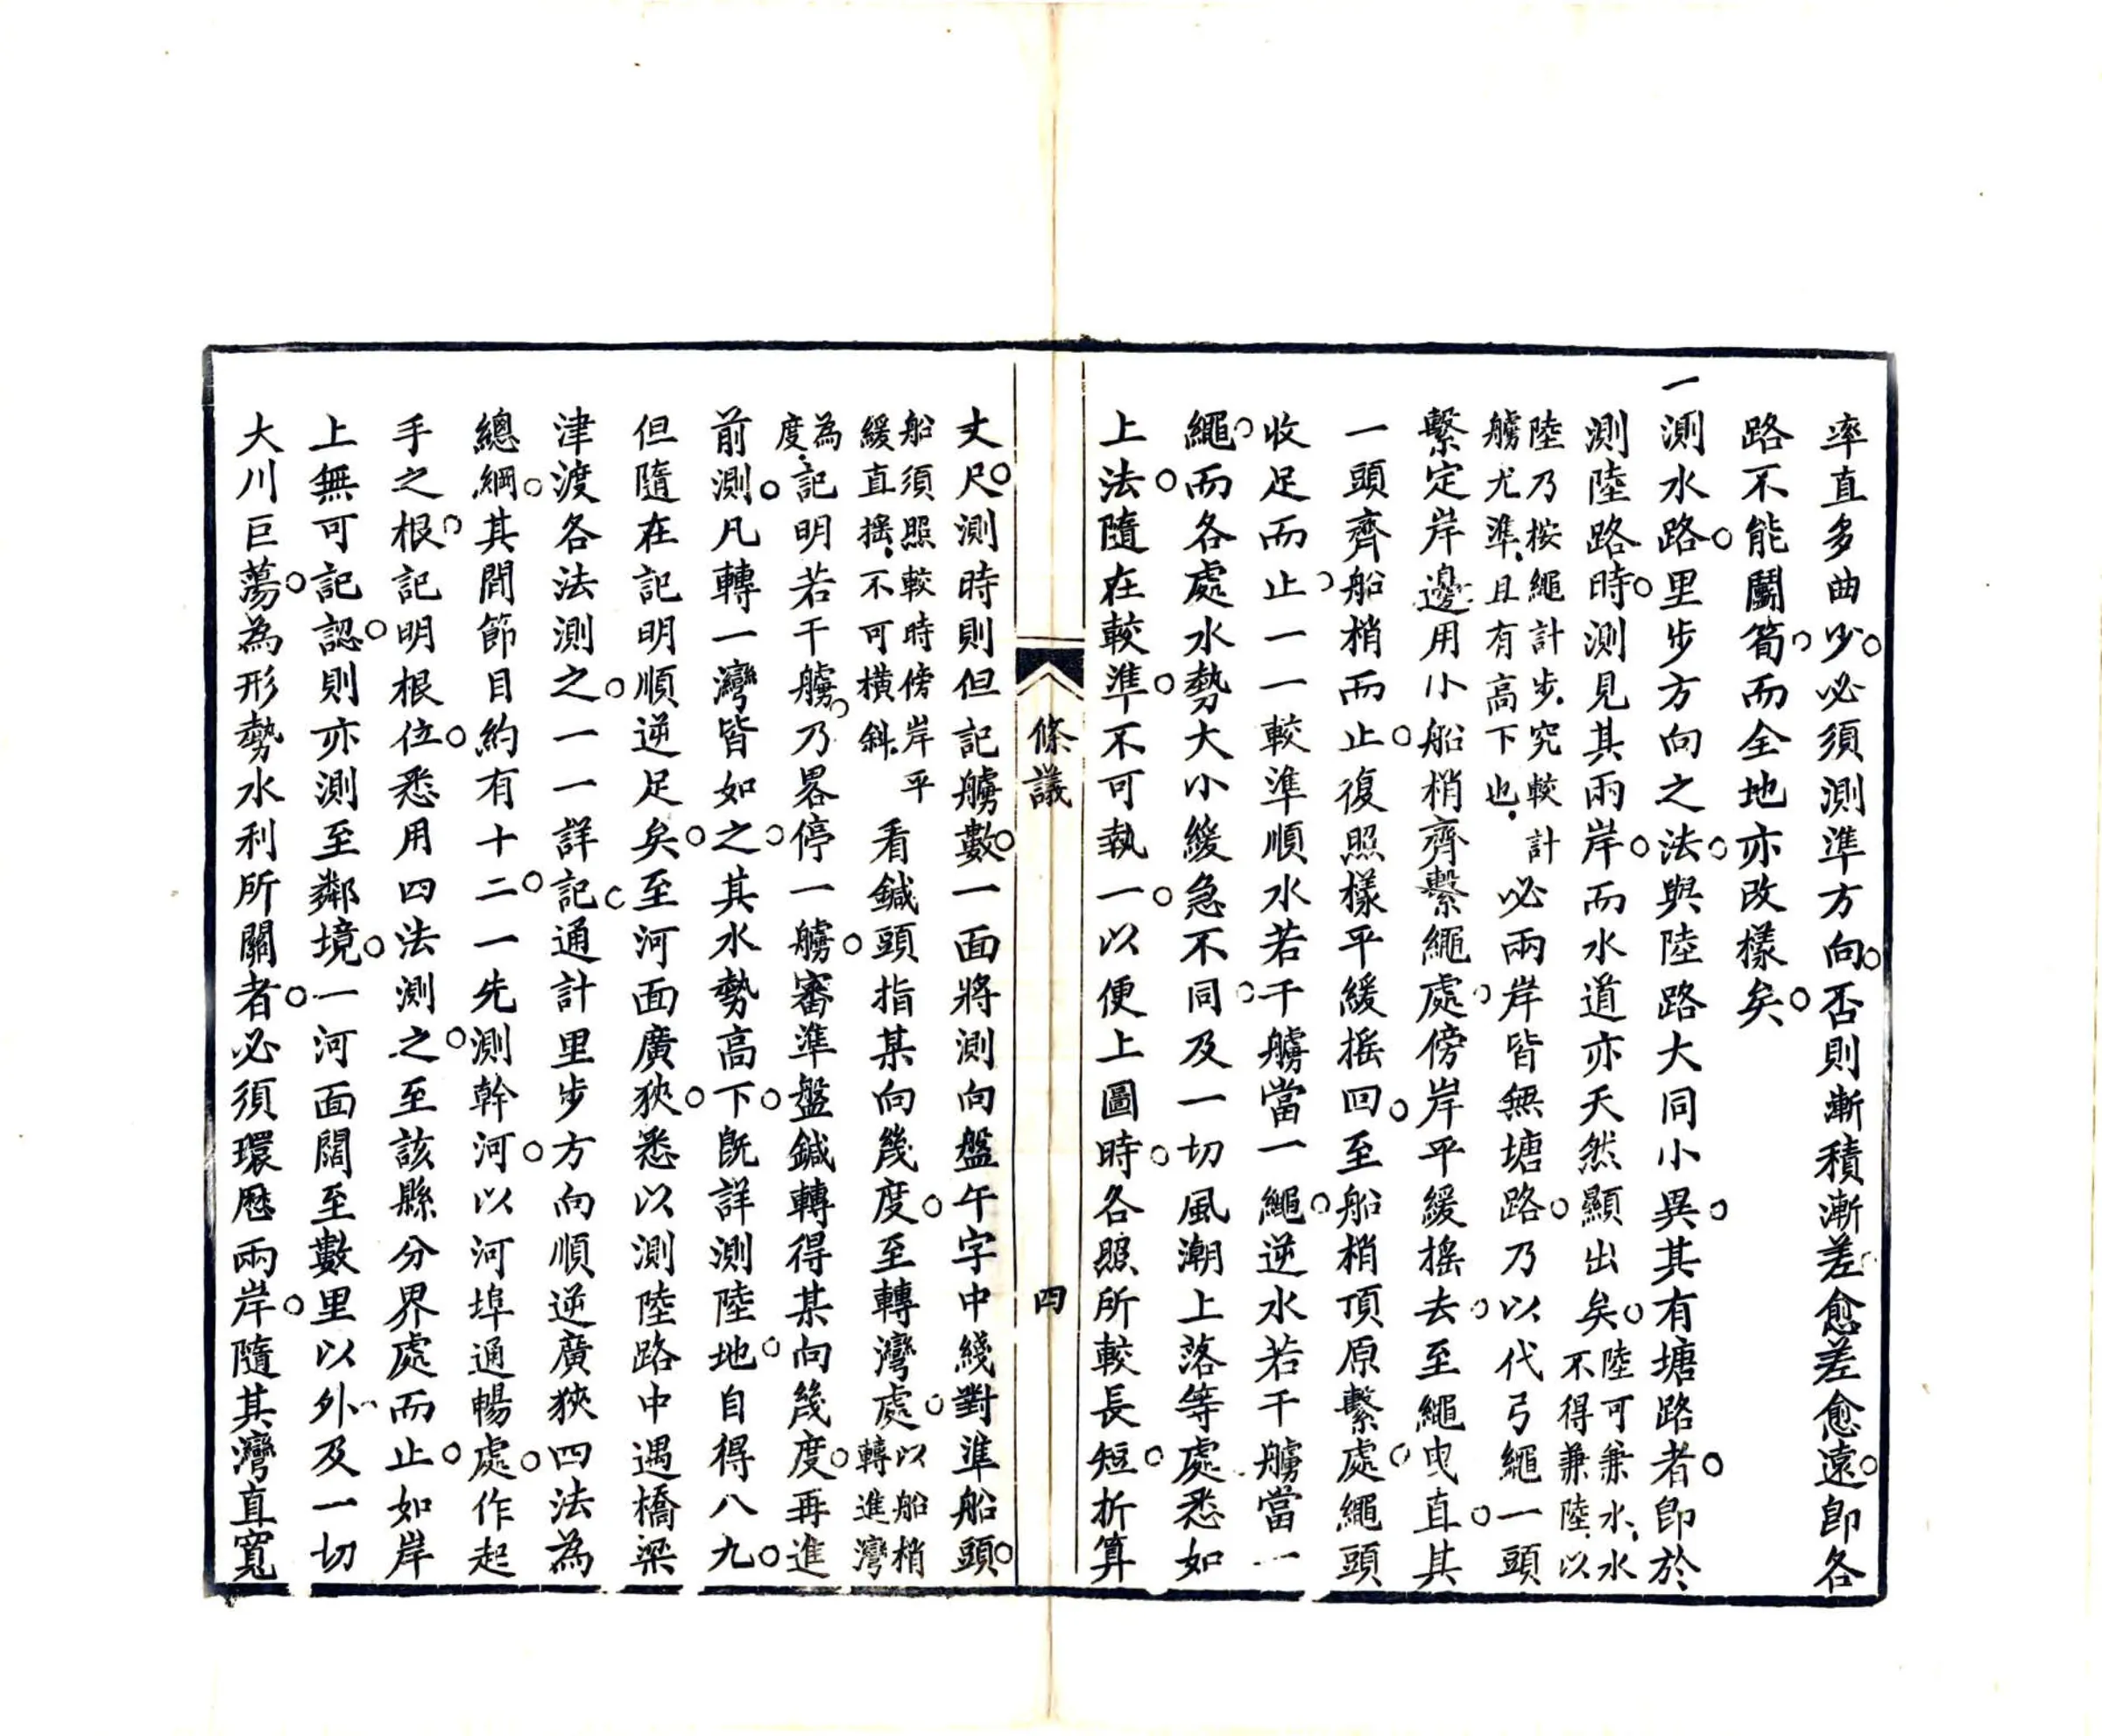 率直多曲少。必須測準方向。否則漸積漸差愈差愈遠。即各
路不能鬭筍。而全地亦改樣矣。
一測水路。里步方向之法。與陸路大同小異。其有塘路者。即於
測陸路時。測見其兩岸。而水道亦天然顯出矣。陸可兼水、水
不得兼陸、以
陸乃按繩計步、究較計
艣尤準、且有高下也、必兩岸皆無塘路。乃以代弓繩一頭
繫定岸邊用小船梢齊繫繩處。傍岸平緩搖去。至繩曳直。其
一頭齊船梢而止。復照樣平緩搖回。至船梢頂原繫處。繩頭
收足而止。一一較準順水若干艣當一繩。逆水若干艣當一
繩。而各處水勢大小緩急不同。及一切風潮上落等處悉如
上法。隨在較準。不可執一。以便上圖時。各照所較長短。折算
條議
四
丈尺。測時則但記艣數。一面將測向盤午字中綫對準船頭。
船須照較時傍岸平
緩直搖、不可橫斜、看鍼頭指某向幾度。至轉灣處。以船梢
轉進灣
為
度、記明若干艣。乃畧停一艣。審準盤鍼轉得某向幾度。再進
前測。凡轉一灣皆如之。其水勢高下。既詳測陸地。自得八九。
但隨在記明順逆足矣。至河面廣狹。悉以測陸路中遇橋梁
津渡各法測之。一一詳記。通計里步方向順逆廣狹四法為
總綱。其間節目約有十二。一先測幹河。以河埠通暢處。作起
手之根。記明根位。悉用四法測之。至該縣分界處而止。如岸
上無可記認。則亦測至鄰境。一河面闊至數里以外、及一切
大川巨蕩。為形勢水利所關者。必須環歷兩岸。隨其灣直寬